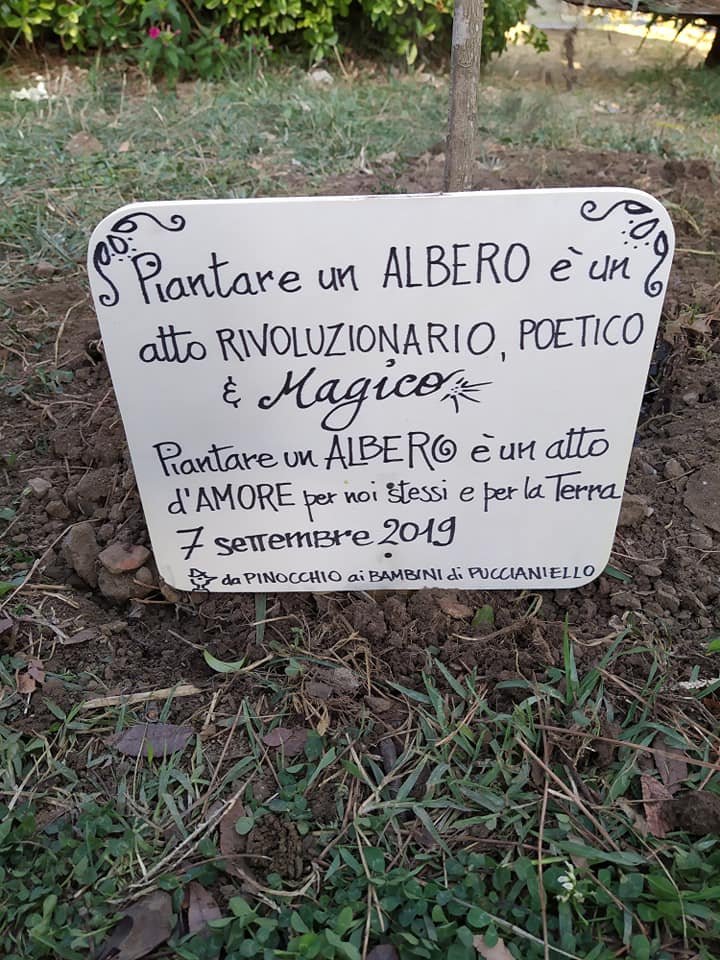 Piantare un ALBERO è un
atto RIVOLUZIONARIO, POETICO
& Magico
Piantare un ALBERO è un atto
d'AMORE per noi stessi e per la Terra
7 settembre 2019
da PINOCCHIO ai BAMBINI di PUCCIANIELLO